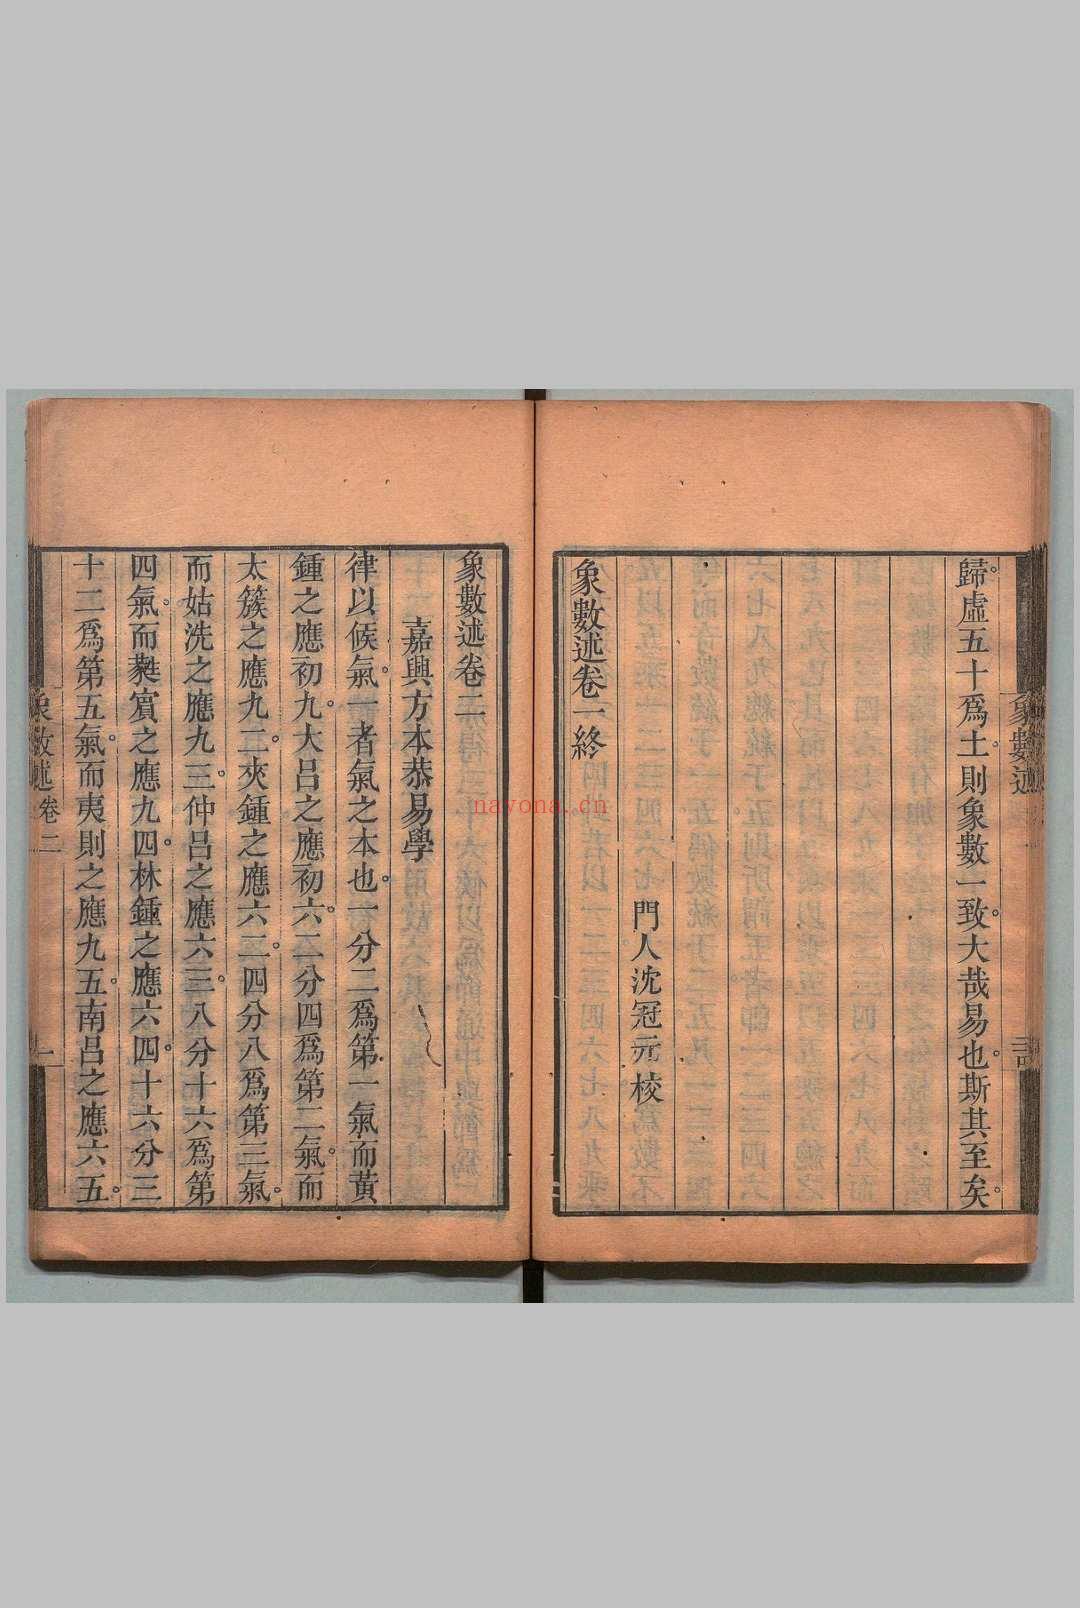 歸虛五十爲土則象數一致大哉易也斯其至矣
門人沈冠元校
象數述卷一終
象數述
象數述卷二
嘉興方本恭易學
律以候氣一者氣之本也一分二爲第一氣而黃
鍾之應初九大呂之應初六二分四爲第二氣而
太簇之應九二夾鍾之應六二四分八爲第三氣
而姑洗之應九三仲呂之應六三八分十六爲第
四氣而蕤賓之應九四林鍾之應六四十六分三
十二爲第五氣而夷則之應九五南呂之應六五
象數述卷二
一
nayona.cn